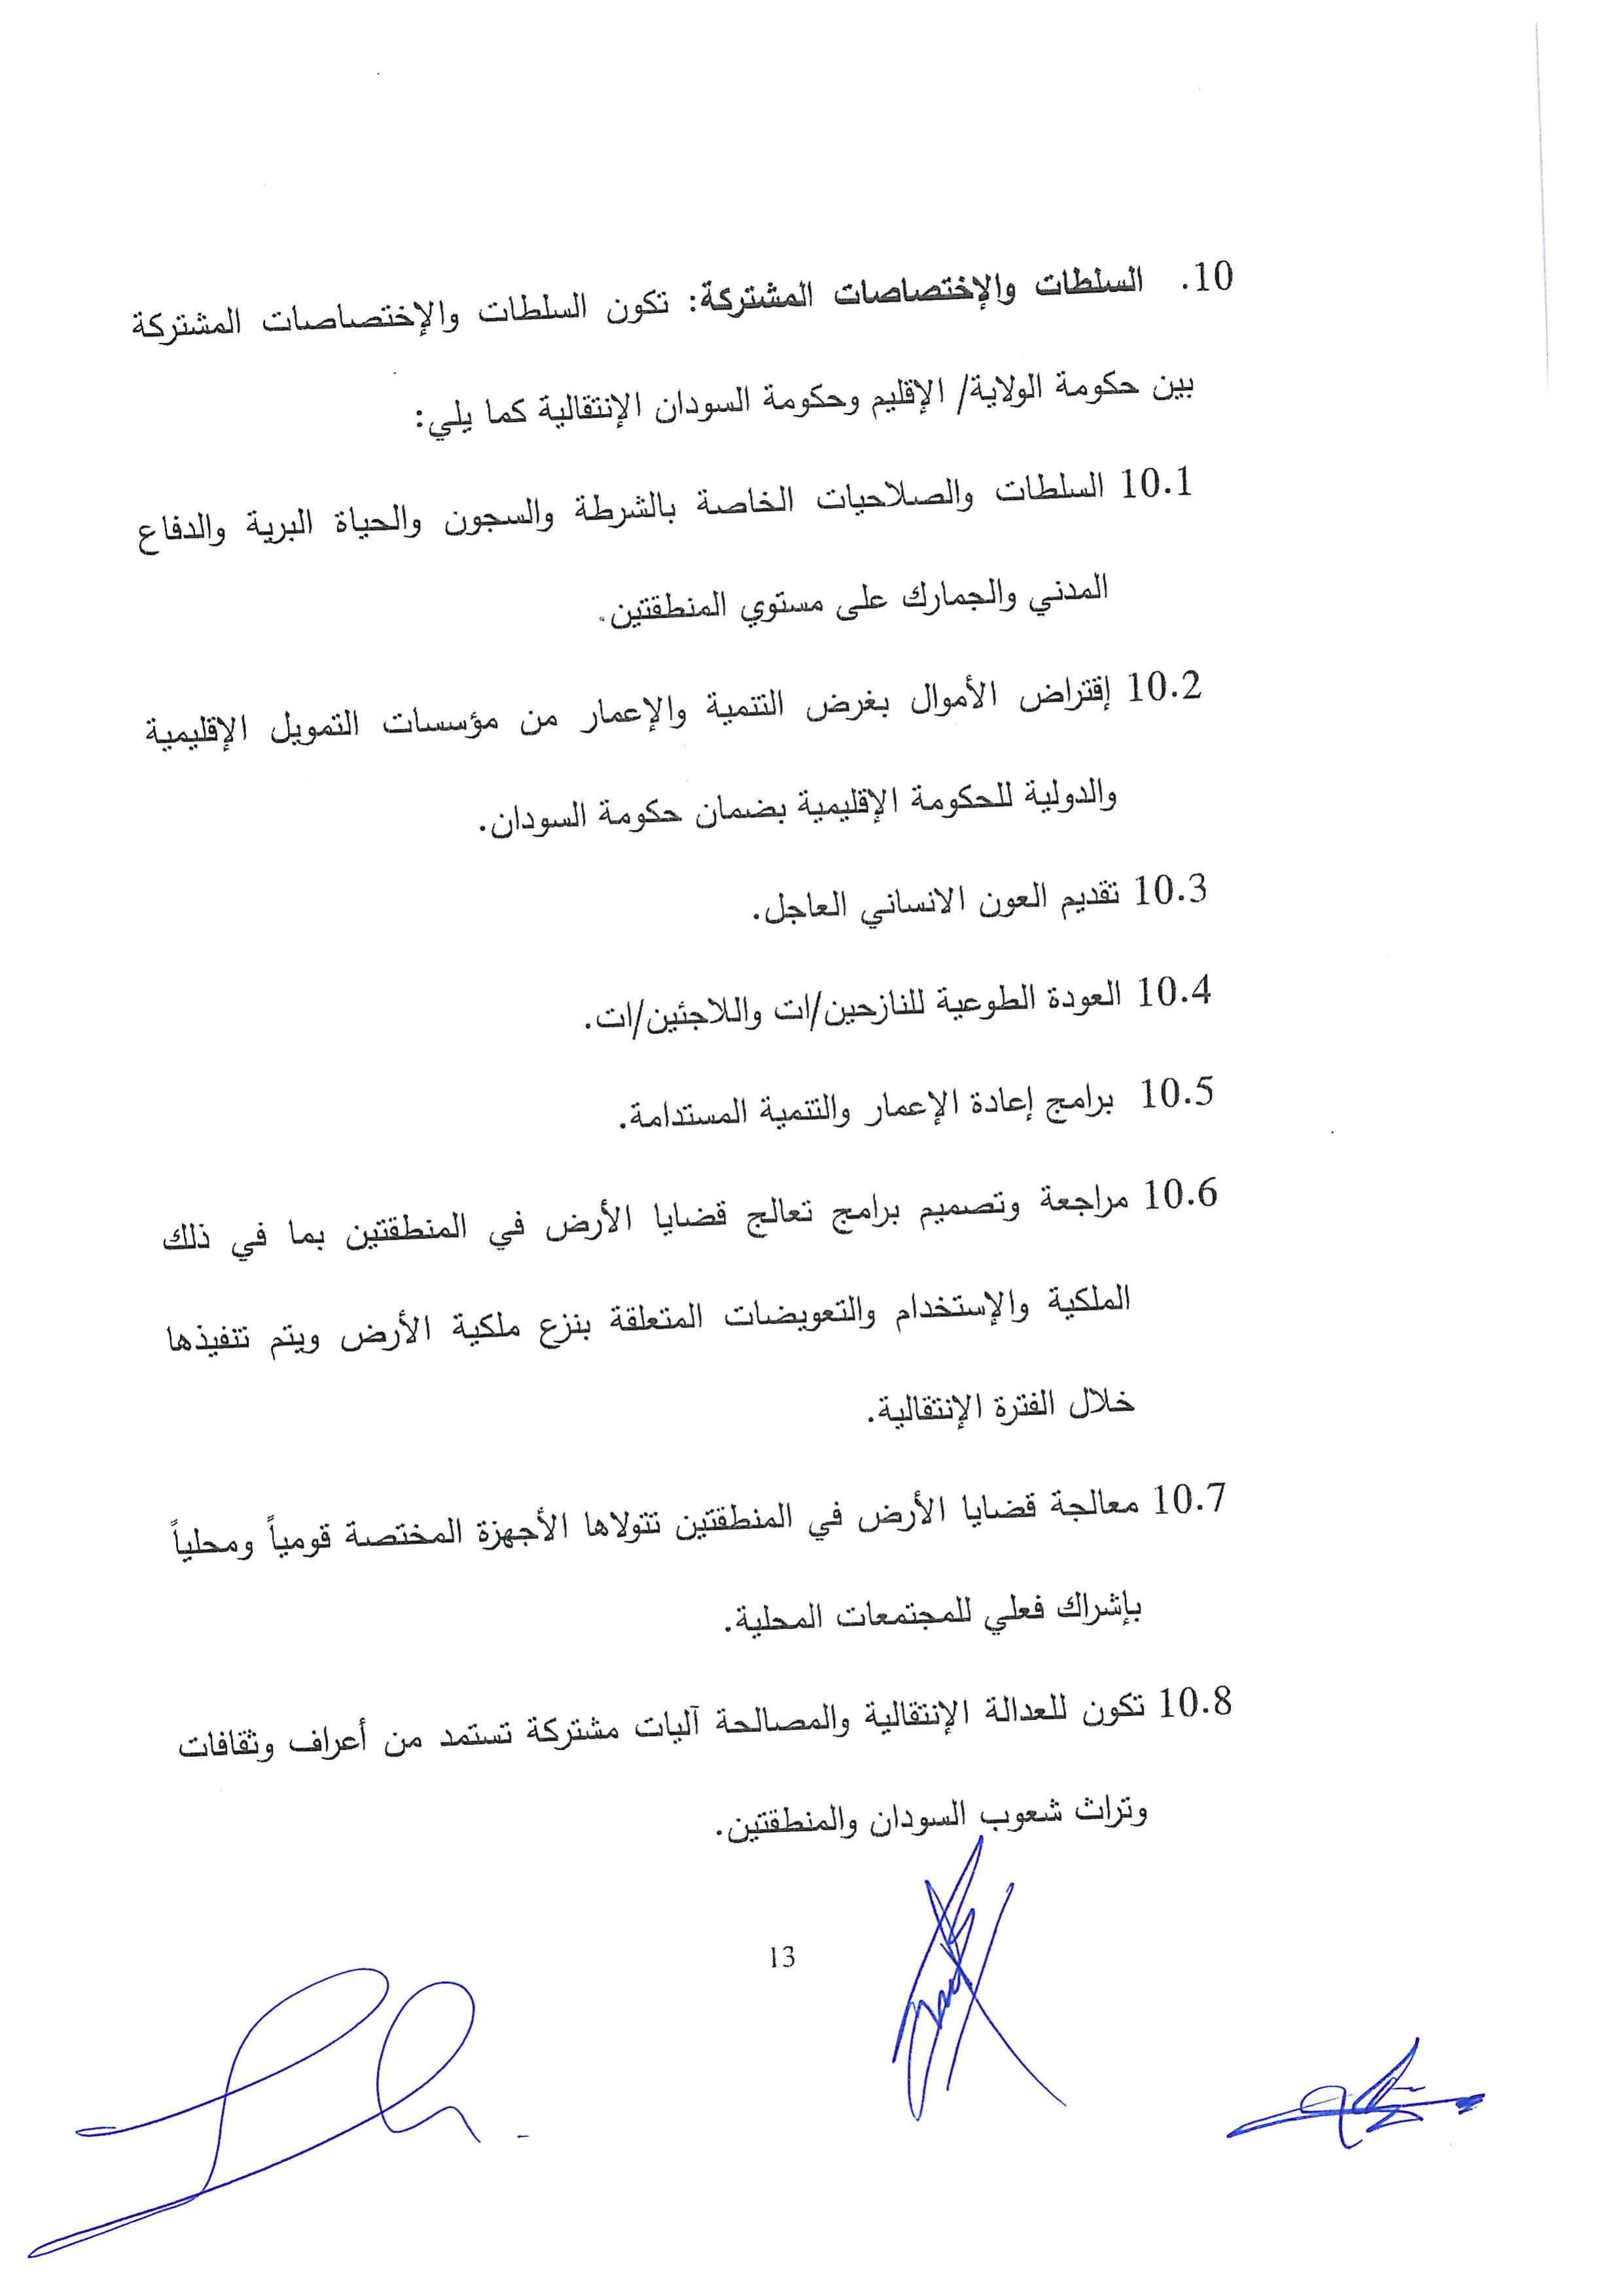 10. السلطات والإختصاصات المشتركة: تكون السلطات والإختصاصات المشتركة
بين حكومة الولاية/ الإقليم وحكومة السودان الإنتقالية كما يلي:
10.1 السلطات والصلاحيات الخاصة بالشرطة والسجون والحياة البرية والدفاع
المدني والجمارك على مستوي المنطقتين.
10.2 إقتراض الأموال بغرض التنمية والإعمار من مؤسسات التمويل الإقليمية
والدولية للحكومة الإقليمية بضمان حكومة السودان.
10.3 تقديم العون الانساني العاجل.
10.4 العودة الطوعية للنازحين/ات واللاجئين/ات.
10.5 برامج إعادة الإعمار والتنمية المستدامة.
10.6 مراجعة وتصميم برامج تعالج قضايا الأرض في المنطقتين بما في ذلك
الملكية والإستخدام والتعويضات المتعلقة بنزع ملكية الأرض ويتم تنفيذها
خلال الفترة الإنتقالية.
10.7 معالجة قضايا الأرض في المنطقتين تتولاها الأجهزة المختصة قومياً ومحلياً
بإشراك فعلي للمجتمعات المحلية.
10.8 تكون للعدالة الإنتقالية والمصالحة آليات مشتركة تستمد من أعراف وثقافات
وتراث شعوب السودان والمنطقتين.
13